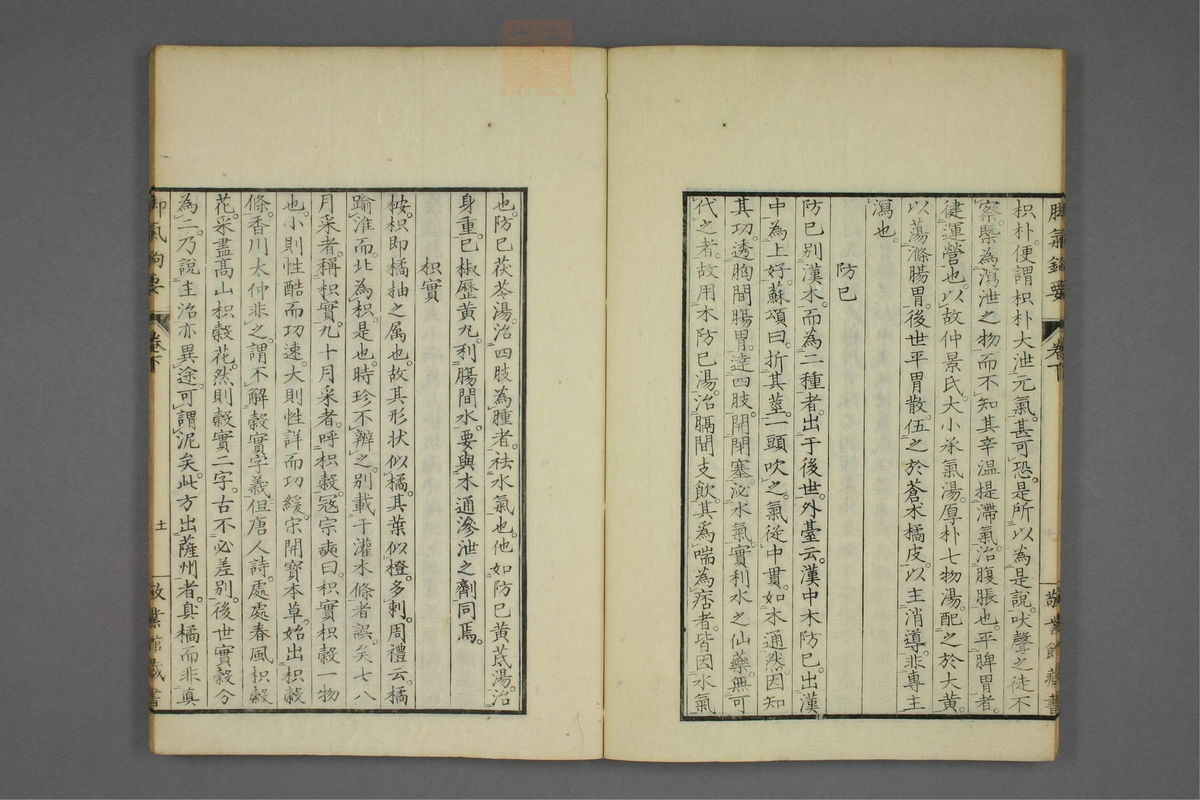 脚氣鉤要 卷下 敬業館藏書
枳朴便謂枳朴大泄元氣甚可恐是所以為是說吠聲之徒不
察槩為瀉泄之物而不知其辛溫提滯氣治腹脹也平脾胃者
健運營也以故仲景氏大小承氣湯厚朴七物湯配之於大黃
以蕩滌腸胃後世平胃散伍之於蒼朮橘皮以主消導非專主
瀉也
防已
防已別漢木而為二種者出于後世外臺云漢中木防已出漢
中為上好蘇頌曰折其莖一頭吹之氣從中貫如木通然因知
其功透胸間腸胃達四肢開閉塞泌水氣實利水之仙藥無可
代之者故用木防已湯治膈間支飲其為喘為痞者皆因水氣
也防已茯苓湯治四肢為腫者祛水氣也他如防已黃芪湯治
身重已椒歷黃丸利腸間水要與木通滲泄之劑同焉
枳實
按枳即橘柚之属也故其形状似橘其葉似橙多刺周禮云橘
踰淮而北為枳是也時珍不辨之別載于灌木條者誤矣七八
月采者稱枳實九十月采者呼枳殼寇宗奭曰枳實枳殼一物
也小則性酷而功速大則性詳而功緩宋開寶本草始出枳殼
條香川太仲非之謂不解殼實字義但唐人詩處處春風枳殼
花采盡高山枳殼花然則殼實二字古不必差別後世實殼分
為二乃說主治亦異途可謂泥矣此方出薩州者真橘而非真
脚氣鉤要 卷下 十一 敬業館藏書